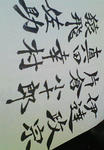 伊達政宗
片倉小十郎
真田幸村
猿飛佐助